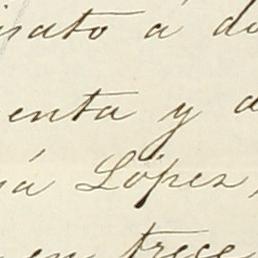 isato á d
enta y d
ía López,
en trece